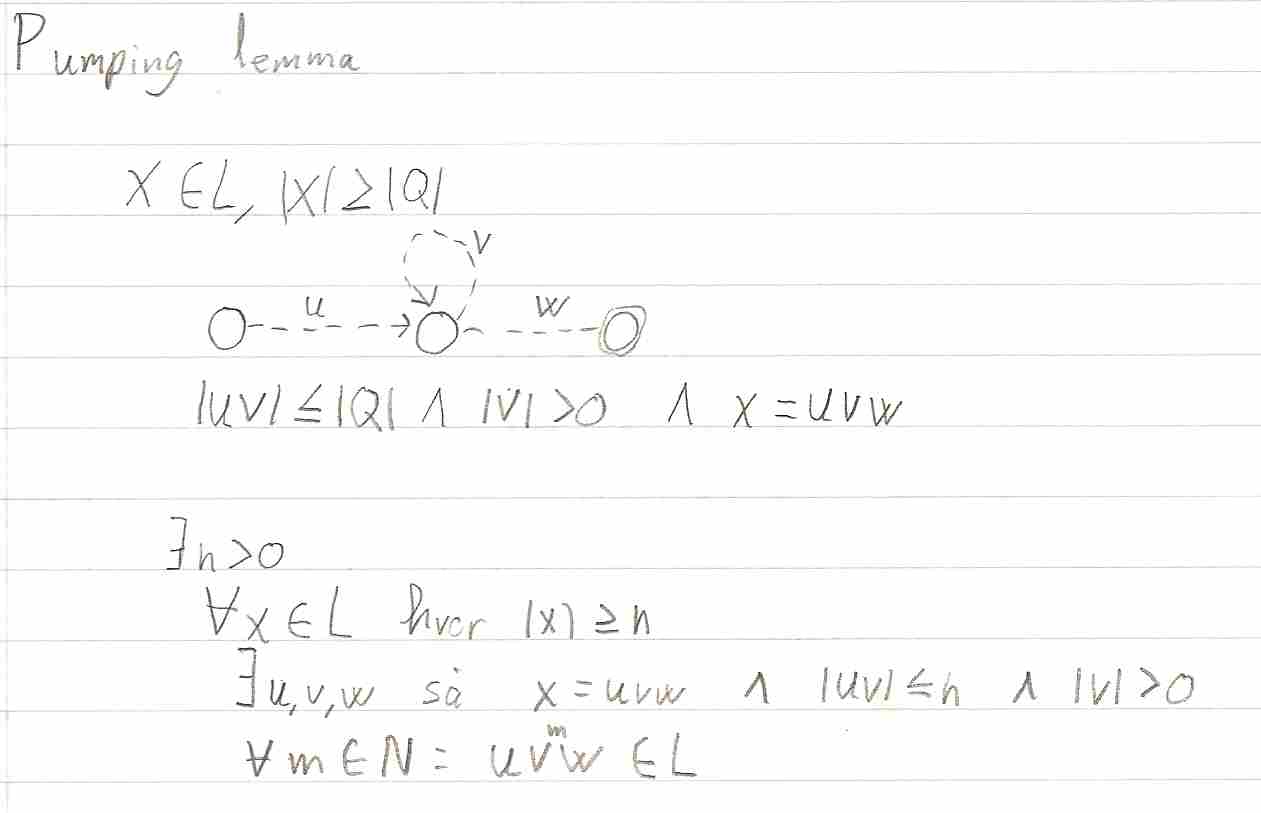 Pumping lemma
X ∈ L, |X| ≥ |Q|
v
u w
|uv| ≤ |Q| ∧ |V| > 0 ∧ x = uvw
∃n>0
∀x ∈ L hvor |x| ≥ n
∃u,v,w så x = uvw ∧ |uv| ≤ n ∧ |v| > 0
∀m ∈ N = uvᵐw ∈ L